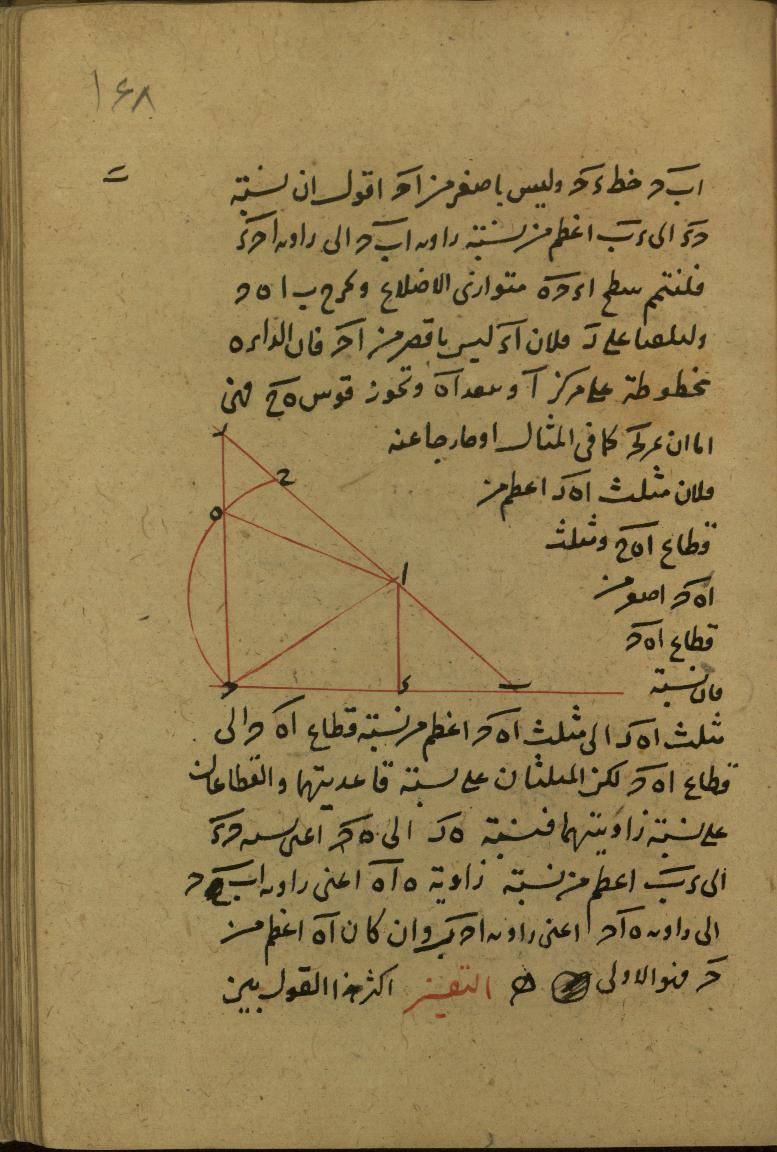 ١٤٨
اب ح خط ء ح وليس باصغر من ا ح اقول ان نسبة
ح ء الى ء ب اعظم من نسبة زاوية اب ح الى زاوية ا ح ء
فلنتمم سطح ا ء ح ه متوازى الاضلاع ونخرج ب ا ه ح
وليلتقيا على ر فلان ا ء ليس باقصر من ا ح فان الدائرة
مخطوطة على مركز ا وببعد ا ه وتجوز قوس ه ح فهى
اما ان كما فى المثال او خارجا عنه
فلان مثلث ا ه ر اعظم من
قطاع ا ه ح ومثلث
ا ه ح اصغر من
قطاع ا ه ح
فان نسبة
مثلث ا ه ر الى مثلث ا ه ح اعظم من نسبة قطاع ا ه ح الى
قطاع ا ه ح لكن المثلثان على نسبة قاعدتيهما والقطاعان
على نسبة زاويتيهما فنسبة ه ر الى ه ح اعنى نسبة ح ء
الى ء ب اعظم من نسبة زاوية ه ا ه اعنى زاوية اب ح
الى زاوية ه ا ح اعنى زاوية ا ح ء وان كان ا ه اعظم من
ح فهو الاولى التفسير اكثر هذا القول بين
ر
ح
ه
ا
ح
ء
ب